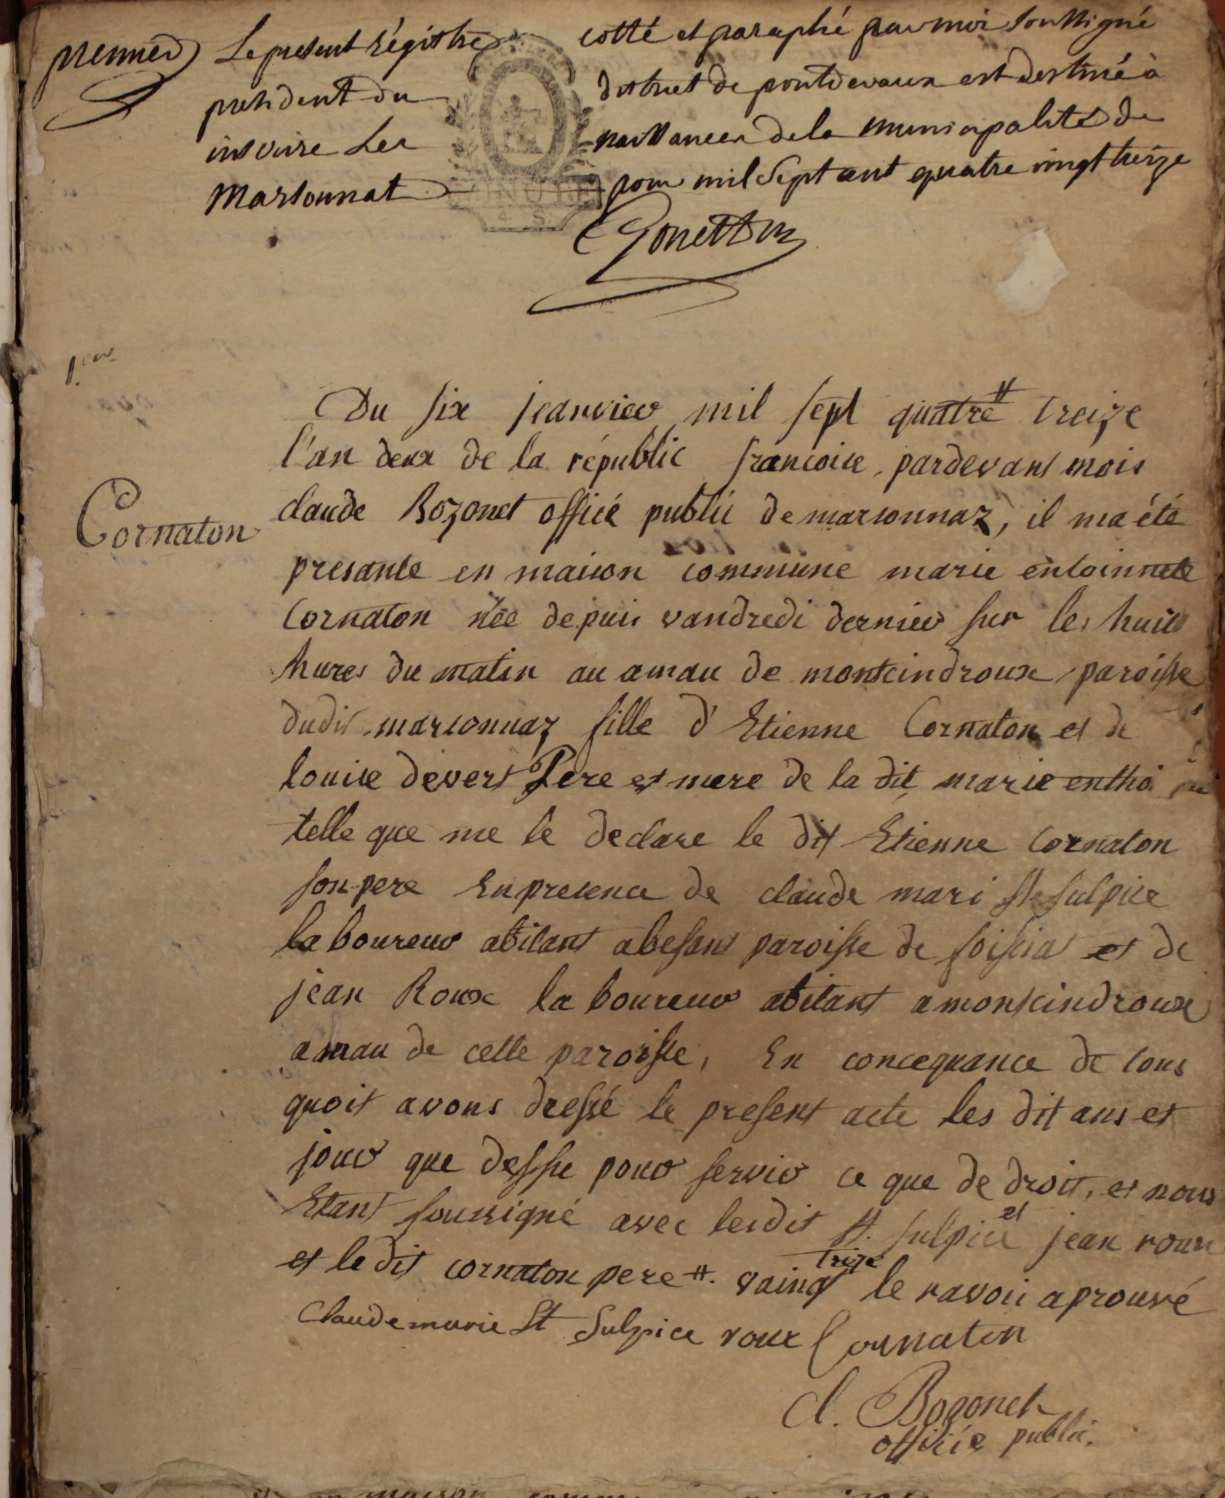 premier Le present régistre cotté et paraphé par moi soussigné
president du district de pontdevaux est destiné à
inscrire les naissances de la municipalité de
Marsonnat pour mil sept cent quatre vingt treize
Gonetton
1.er
Du six jeanvier mil sept quatre # treize
l'an deux de la républic francoise, pardevant mois
Cornaton
claude Bozonet officié publié de marsonnaz, il ma été
presante en maison commune marie entoinnete
Cornaton née depuis vandredi dernier sur les huits
hures du matin au amau de montcindroux paroisse
dudit marsonnaz fille d'Etienne Cornaton et de
louise devert Pere et mere de la dit marie entho
telle que me le declare le dit Etienne Cornaton
son pere En presence de claude mari St Sulpice
laboureur abitant abesant paroisse de foissia et de
jean Roux laboureur abitant a montcindroux
amau de celle paroisse, En concequance de tous
quoit avons dressé le present acte les dit ans et
jour que dessu pour servir ce que de droit, et nous
Etant soussigné avec lesdit St. Sulpice et jean roux
et le dit cornaton pere #. vainq trize le ravoii aprouvé
Claude marie St Sulpice roux Cornaton
cl. Bozonet
officié publié.
MINUTE
maison commune